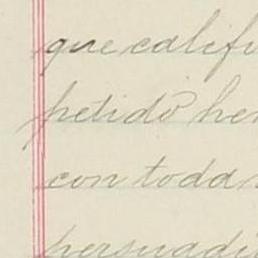 que califi
petido her
con toda
persuadi